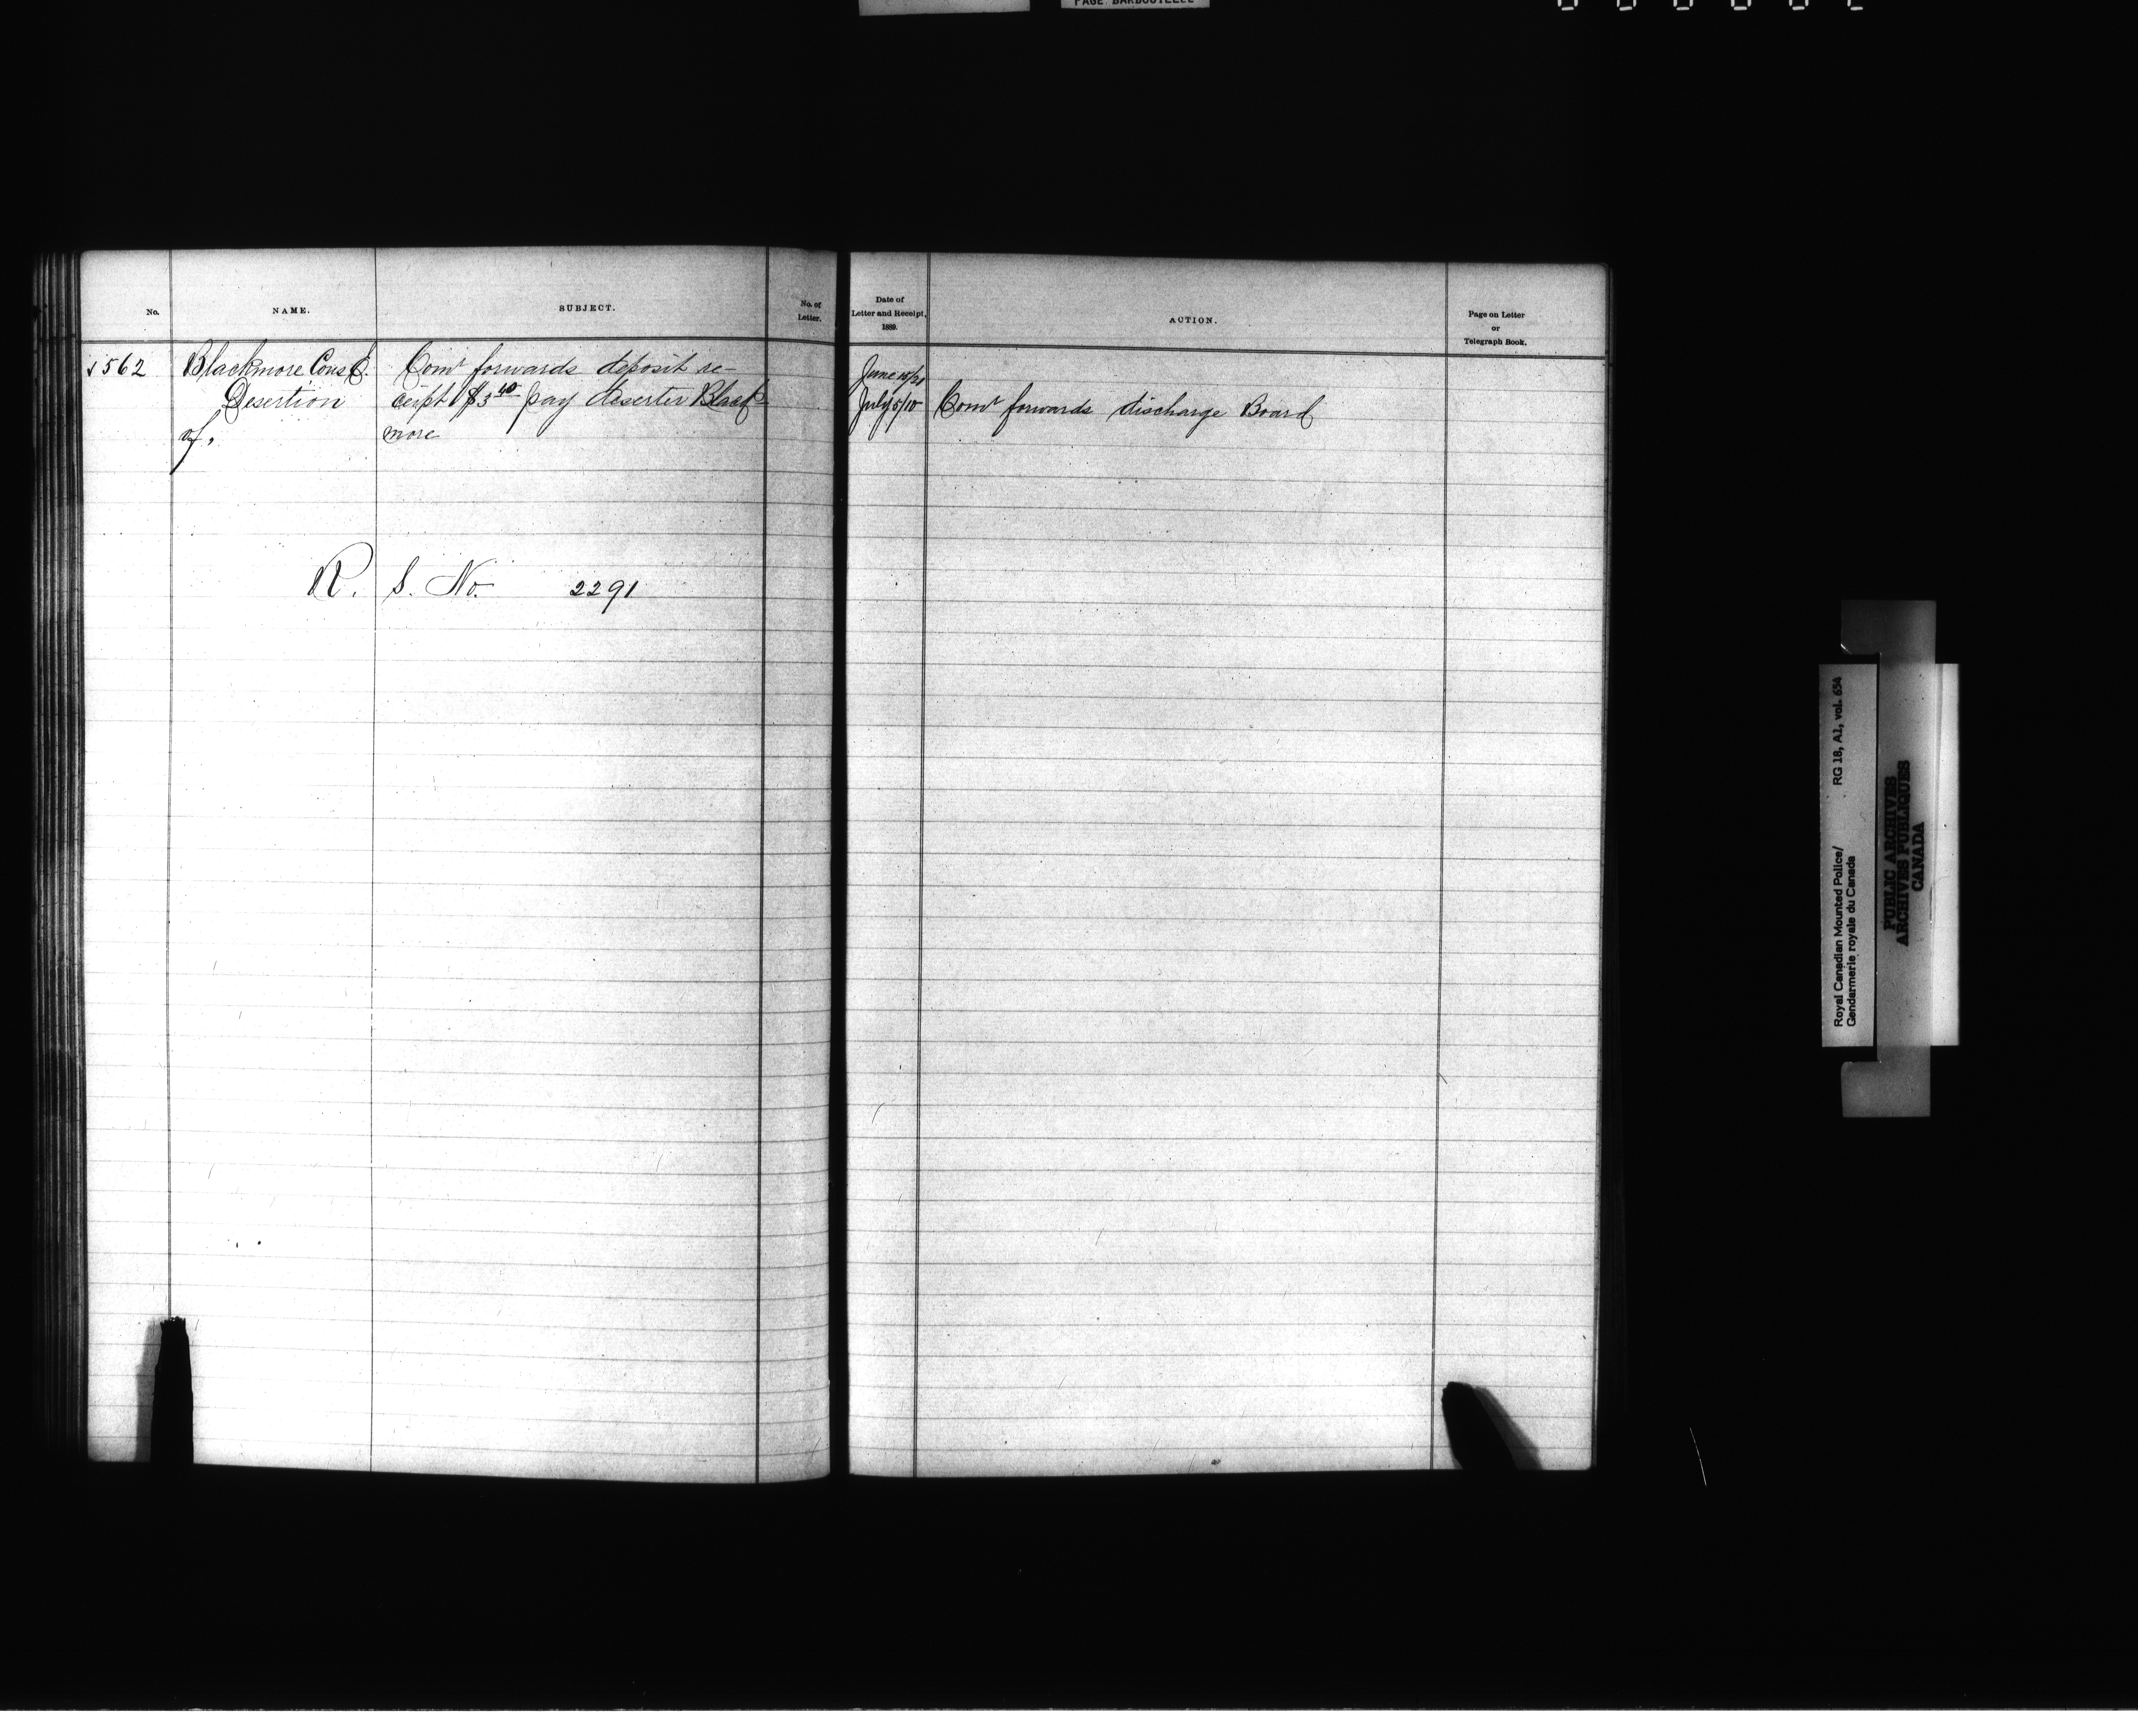 PAGE BARBOUILLÉE
No.
NAME.
SUBJECT.
No. of
Letter.
562 Blackmore Const.
Desertion
of.
Comr forwards deposit re-
ceipt $3 pay deserter Black
more
R. S. No. 2291
Date of
Letter and Receipt,
1889.
ACTION.
Page on Letter
or
Telegraph Book.
June 15/21
July 5/10 Comr forwards discharge Board
Royal Canadian Mounted Police/
Gendarmerie royale du Canada
RG 18, A1, vol. 654
PUBLIC ARCHIVES
ARCHIVES PUBLIQUES
CANADA